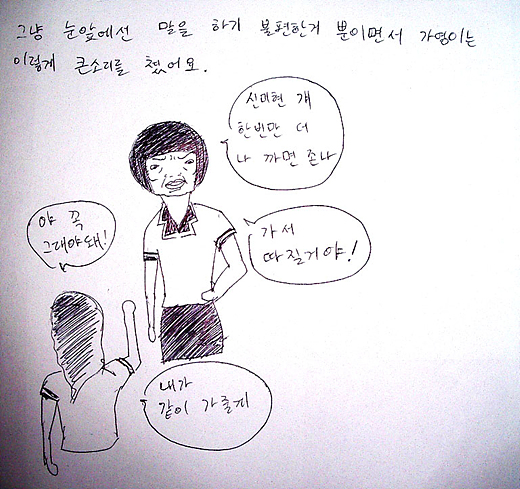 그냥 눈앞에선 말을 하기 불편한거 뿐이면서 가영이는
이렇게 큰소리를 쳤어요.
신미현 걔
한번만 더
나 까면 존나
가서
따질거야!
야 꼭
그래야돼!
내가
같이 가줄게